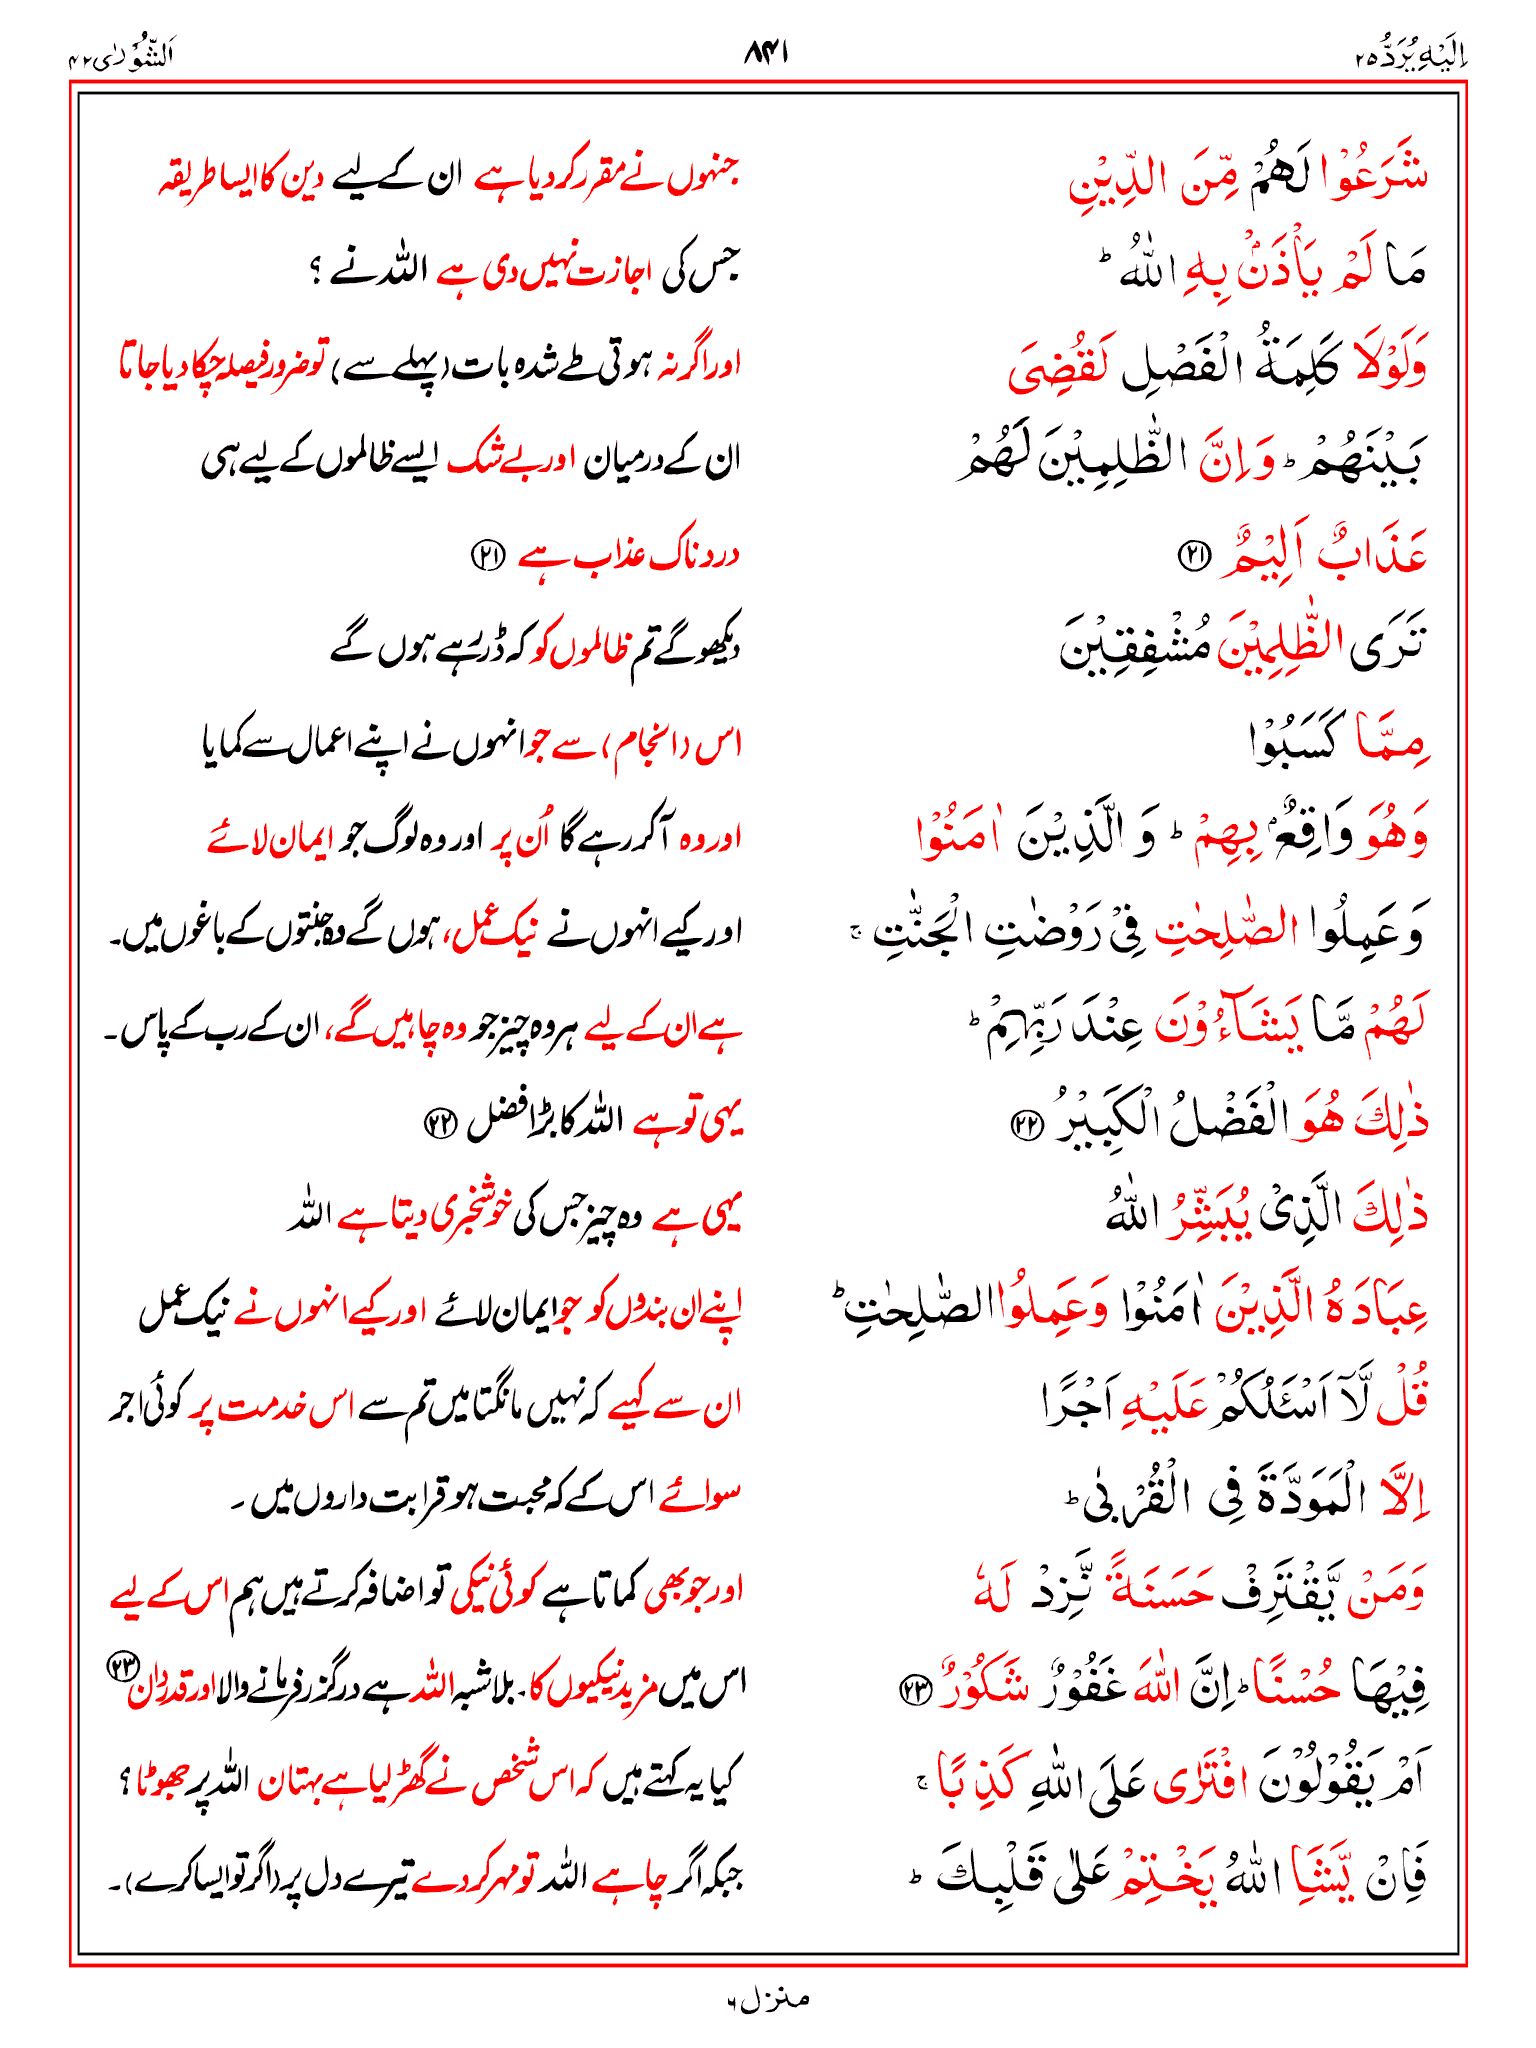 اِلَیْهِ یُرَدُّ ۲۵
۸۴۱
اَلشُّوْرٰی ۴۲
شَرَعُوْا لَهُمْ مِّنَ الدِّیْنِ
جنہوں نے مقرر کر دیا ہے ان کے لیے دین کا ایسا طریقہ
مَا لَمْ یَاْذَنْۢ بِهِ اللّٰهُ ؕ
جس کی اجازت نہیں دی ہے اللہ نے ؟
وَلَوْلَا كَلِمَةُ الْفَصْلِ لَقُضِیَ
اور اگر نہ ہوتی طے شدہ بات (پہلے سے) تو ضرور فیصلہ چکا دیا جاتا
بَیْنَهُمْ ؕ وَاِنَّ الظّٰلِمِیْنَ لَهُمْ
ان کے درمیان اور بے شک ایسے ظالموں کے لیے ہی
عَذَابٌ اَلِیْمٌ ۲۱
دردناک عذاب ہے ۲۱
تَرَی الظّٰلِمِیْنَ مُشْفِقِیْنَ
دیکھو گے تم ظالموں کو کہ ڈر رہے ہوں گے
مِمَّا كَسَبُوْا
اس (انجام) سے جو انہوں نے اپنے اعمال سے کمایا
وَهُوَ وَاقِعٌۢ بِهِمْ ؕ وَ الَّذِیْنَ اٰمَنُوْا
اور وہ آکر رہے گا اُن پر اور وہ لوگ جو ایمان لائے
وَعَمِلُوا الصّٰلِحٰتِ فِیْ رَوْضٰتِ الْجَنّٰتِ ۚ
اور کیے انہوں نے نیک عمل، ہوں گے وہ جنتوں کے باغوں میں۔
لَهُمْ مَّا یَشَآءُوْنَ عِنْدَ رَبِّهِمْ ؕ
ہے ان کے لیے ہر وہ چیز جو وہ چاہیں گے، ان کے رب کے پاس۔
ذٰلِكَ هُوَ الْفَضْلُ الْكَبِیْرُ ۲۲
یہی تو ہے اللہ کا بڑا فضل ۲۲
ذٰلِكَ الَّذِیْ یُبَشِّرُ اللّٰهُ
یہی ہے وہ چیز جس کی خوشخبری دیتا ہے اللہ
عِبَادَهُ الَّذِیْنَ اٰمَنُوْا وَعَمِلُوا الصّٰلِحٰتِ ؕ
اپنے ان بندوں کو جو ایمان لائے اور کیے انہوں نے نیک عمل
قُلْ لَّاۤ اَسْـَٔلُكُمْ عَلَیْهِ اَجْرًا
ان سے کہیے کہ نہیں مانگتا میں تم سے اس خدمت پر کوئی اجر
اِلَّا الْمَوَدَّةَ فِی الْقُرْبٰی ؕ
سوائے اس کے کہ محبت ہو قرابت داروں میں۔
وَمَنْ یَّقْتَرِفْ حَسَنَةً نَّزِدْ لَهٗ
اور جو بھی کماتا ہے کوئی نیکی تو اضافہ کرتے ہیں ہم اس کے لیے
فِیْهَا حُسْنًا ؕ اِنَّ اللّٰهَ غَفُوْرٌ شَكُوْرٌ ۲۳
اس میں مزید نیکیوں کا۔ بلاشبہ اللہ ہے درگزر فرمانے والا اور قدردان ۲۳
اَمْ یَقُوْلُوْنَ افْتَرٰی عَلَی اللّٰهِ كَذِبًا ۚ
کیا یہ کہتے ہیں کہ اس شخص نے گھڑ لیا ہے بہتان اللہ پر جھوٹا ؟
فَاِنْ یَّشَاِ اللّٰهُ یَخْتِمْ عَلٰی قَلْبِكَ ؕ
جبکہ اگر چاہے اللہ تو مہر کر دے تیرے دل پر (اگر تو ایسا کرے)۔
منزل ۶